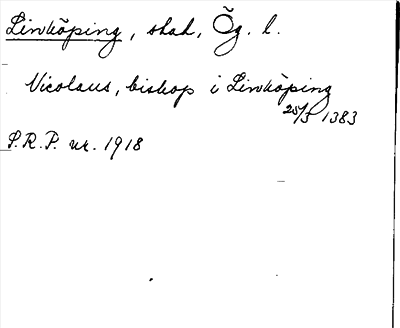 Linköping, stad, Ög. l.
Nicolaus, biskop i Linköping
25/3 1383
S.R.P. nr. 1918